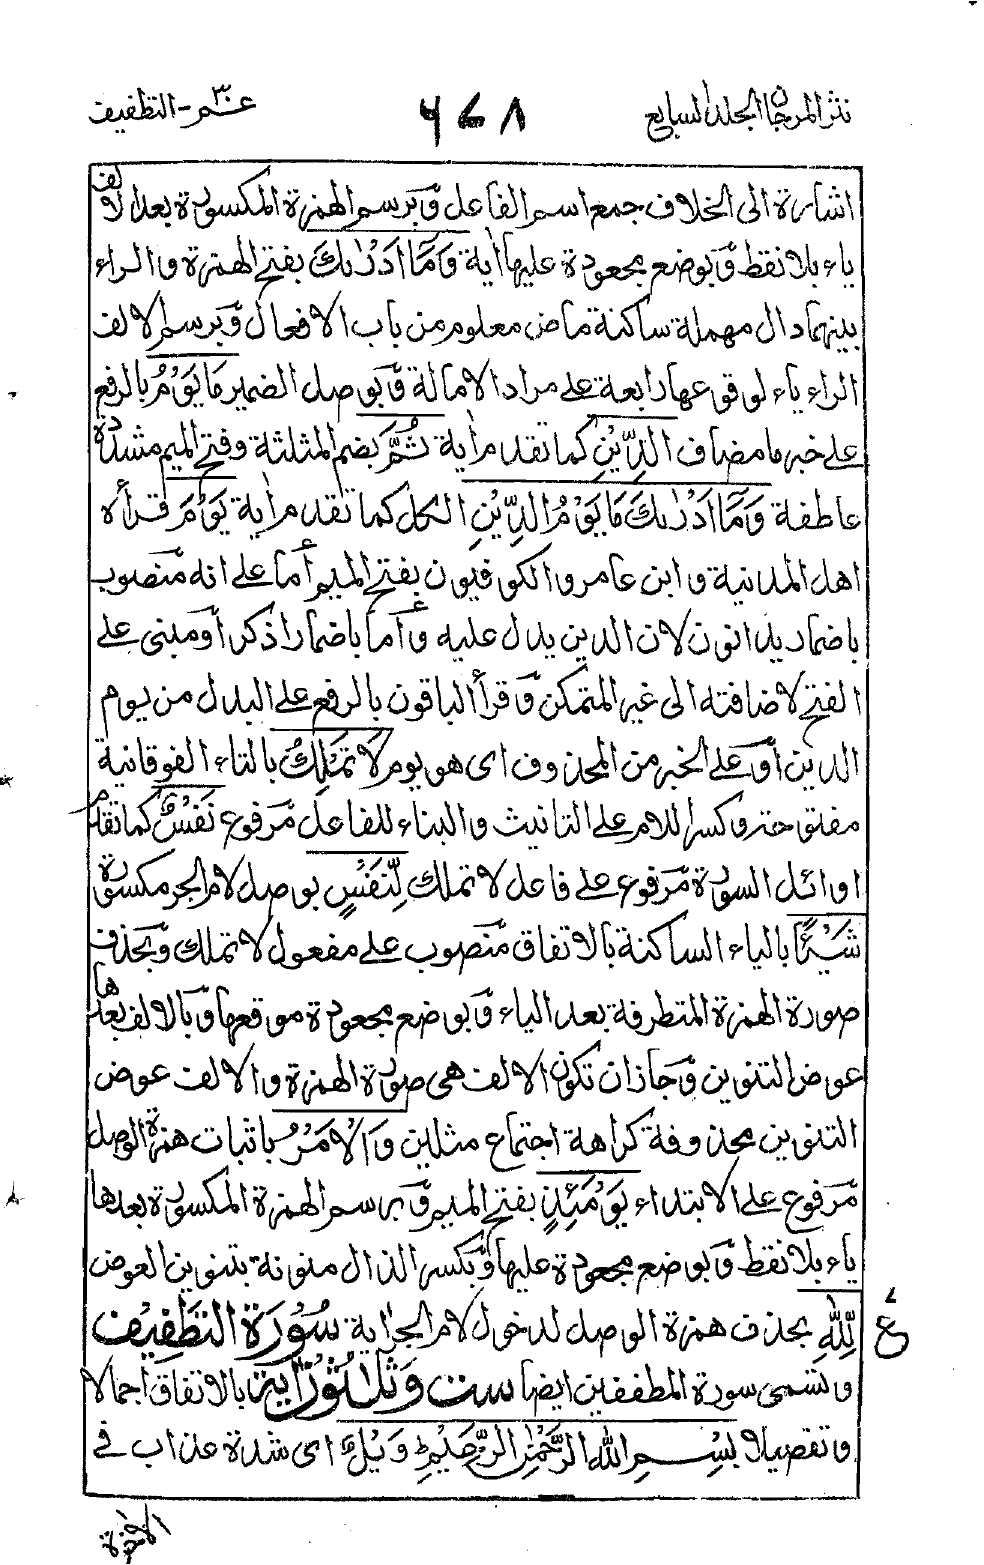 نثر المرجان الجلد السابع ۶۷۸ عم۳۰-التطفيف
اشارة الى الخلاف جمع اسم الفاعل وَبرسم الهمزة المكسورة بعد الالف
ياء بلا نقط وَبوضع مجعودة عليها اٰية وَمَآ اَدْرٰىكَ بفتح الهمزة والراء
بينهما دال مهملة ساكنة ماض معلوم من باب الافعال وَبرسم الالف
الراء ياء لوقوعها رابعة على مراد الامالة وَبوصل الضمير مَا يَوْمُ بالرفع
على خبر ما مضاف الدِّيْنِ كما تقدم اٰية ثُمَّ بضم المثلثة وفتح الميم مشددة
عاطفة وَمَآ اَدْرٰىكَ مَا يَوْمُ الدِّيْنِ الكل كما تقدم اٰية يَوْمَ قرأه
اهل المدنية وابن عامر والكوفيون بفتح الميم أما على انه منصوب
باضمار يدانون لان الدين يدل عليه وَأما باضمار اذكر أومبنى على
الفتح لاضافته الى غير المتمكن وَقرأ الباقون بالرفع على البدل من يوم
الدين أوَ على الخبر من المحذوف اى هو يوم لَا تَمْلِكُ بالتاء الفوقانية
مفتوحة وكسر اللام على التانيث والبناء للفاعل مَرفوع نَفْسٌ كما تقدم
اوائل السورة مَرفوع على فاعل لا تملك لِّنَفْسٍ بوصل لام الجر مكسورة
شَيْـًٔا بالياء الساكنة بالاتفاق مَنصوب على مفعول لا تملك وَبحذف
صورة الهمزة المتطرفة بعد الياء وَبوضع مجعودة موقعها وَبالالف بعدها
عوض التنوين وَجاز ان تكون الالف هى صورة الهمزة والالف عوض
التنوين محذوفة كراهة اجتماع مثلين وَالْاَمْرُ باثبات همزة الوصل
مَرفوع على الابتداء يَوْمَئِذٍ بفتح الميم وَبرسم الهمزة المكسورة بعدها
ياء بلا نقط وَبوضع مجعودة عليها وَبكسر الذال منونة بتنوين العوض
لِلّٰهِ بحذف همزة الوصل لدخول لام الجر اٰية سُوْرَةُ التَّطْفِيْف
ع
وتسمى سورة المطففين ايضا ست وَثَلٰثُوْنَ اٰية بالاتفاق اجمالا
وتفصيلا بِسْمِ اللّٰهِ الرَّحْمٰنِ الرَّحِيْمِ وَيْلٌ اى شدة عذاب في
الاٰخرة